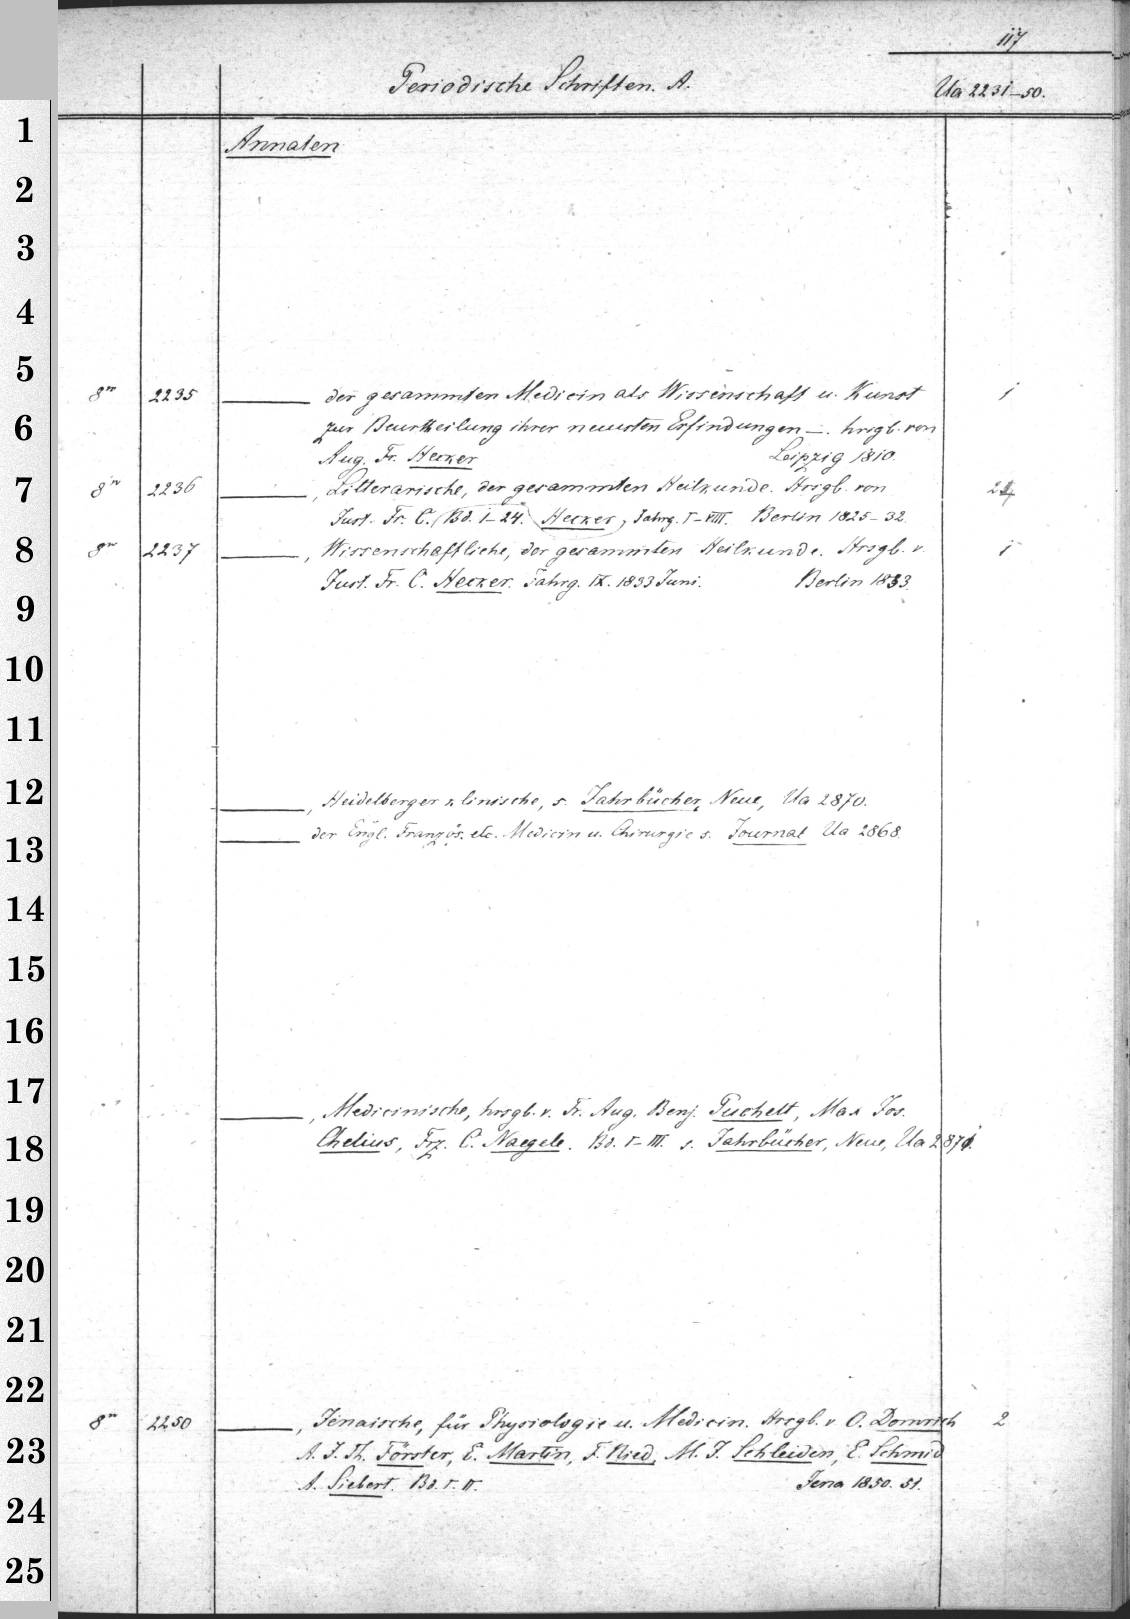 117
Periodische Schriften. A. Ua 2231-50.
1
Annalen
2
3
4
5
8º 2235 ——— der gesammten Medicin als Wissenschaft u. Kunst 1
6 zur Beurtheilung ihrer neuesten Erfindungen —. hrsgb. von
Aug. Fr. Hecker Leipzig 1810.
7 8º 2236 ———, Litterarische, der gesammten Heilkunde. Hrsgb. von 24
Just. Fr. C. (Bd. 1-24. Hecker, Jahrg. I-VIII. Berlin 1825-32.
8 8º 2237 ———, Wissenschaftliche, der gesammten Heilkunde. Hrsgb. v. 1
Just. Fr. C. Hecker. Jahrg. IX. 1833 Juni. Berlin 1833.
9
10
11
12 ———, Heidelberger klinische, s. Jahrbücher, Neue, Ua 2870.
13 ——— der Engl. Französ. etc. Medicin u. Chirurgie s. Journal Ua 2868
14
15
16
17 ———, Medicinische, hrsgb. v. Fr. Aug. Benj. Puchelt, Max Jos.
18 Chelius, Frz. C. Naegele. Bd. I-III. s. Jahrbücher, Neue, Ua 2871.
19
20
21
22
8º 2250 ———, Jenaische, für Physiologie u. Medicin. Hrsgb. v O. Domrich 2
23 A. J. Th. Förster, E. Martin, F. Ried, M. J. Schleiden, E. Schmid
A. Siebert. Bd. I. II. Jena 1850. 51.
24
25